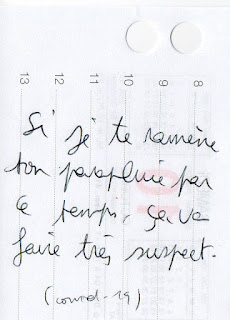 13 12 11 10 9 8
Si je te ramène
ton parapluie par
ce temps, ça va
faire très suspect.
(covid-19)